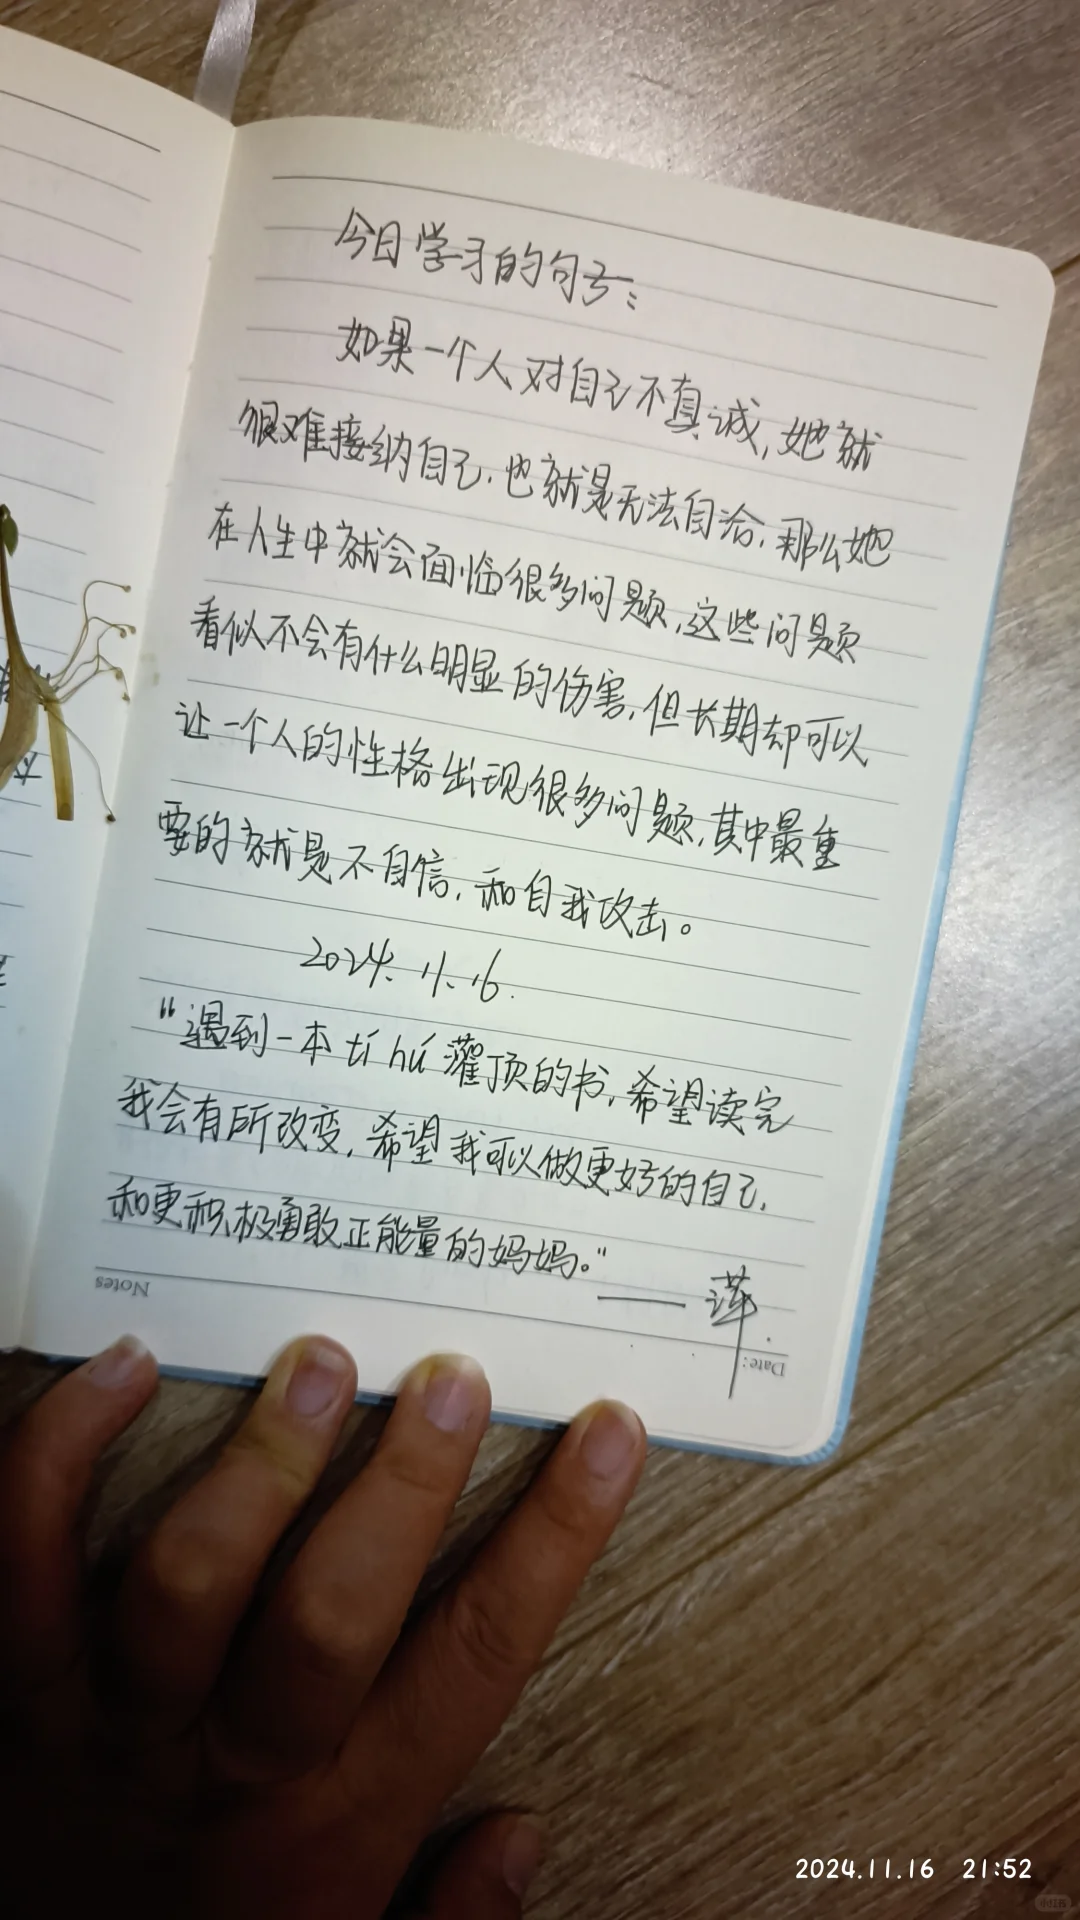 今日学习的句子：
如果一个人对自己不真诚，她就
很难接纳自己，也就是无法自洽，那么她
在人生中就会面临很多问题，这些问题
看似不会有什么明显的伤害，但长期却可以
让一个人的性格出现很多问题，其中最重
要的就是不自信，和自我攻击。
2024.11.16.
“遇到一本tí hú灌顶的书，希望读完
我会有所改变，希望我可以做更好的自己，
和更积极勇敢正能量的妈妈。”
——萍
Notes
Date:
2024.11.16 21:52
小红书